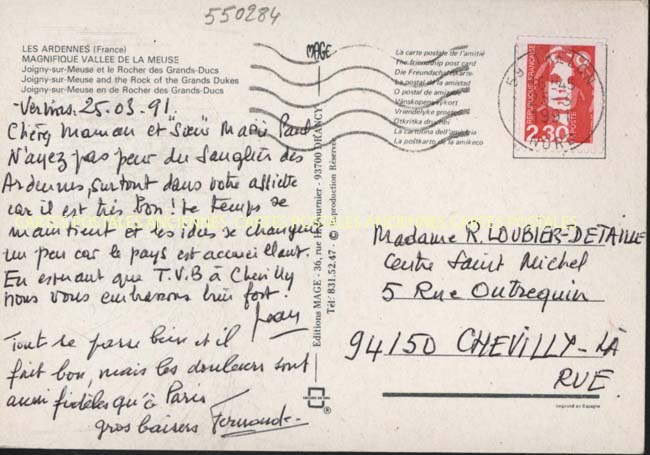 550284
LES ARDENNES (France)
MAGNIFIQUE VALLEE DE LA MEUSE
Joigny-sur-Meuse et le Rocher des Grands-Ducs
Joigny-sur-Meuse and the Rock of the Grands Dukes
Joigny-sur-Meuse en de Rocher des Grands-Ducs
-Vervins. 25.03.91.
Chère Maman et "Sœur" Marie Paul
N'ayez pas peur du Sanglier des
Ardennes, surtout dans votre assiette
car il est très bon! Le temps se
maintient et les idées se changent
un peu car le pays est accueillant.
En espérant que T.V.B à Chevilly
nous vous embrassons bien fort.
Jean
Tout se passe bien et il
fait bon, mais les douleurs sont
aussi fidèles qu'à Paris
gros baisers Fernande.
MAGE
Editions MAGE - 36, rue H. Fournier - 93700 DRANCY
Tél: 831.52.47 - © Reproduction Réservée
La carte postale de l'amitié
The friendship post card
Die Freundschaftskarte
La postal de la amistad
O postal de amizade
Vänskapens vykort
Vriendelijke groeten
Otkritka druzhei
La cartolina dell'amicizia
La poŝtkarto de la amikeco
REPUBLIQUE FRANÇAISE
2,30
POSTE
Madame R. LOUBIER-DETAILLE
Centre Saint Michel
5 Rue Outrequin
94150 CHEVILLY-LA
RUE
Imprimé en Espagne